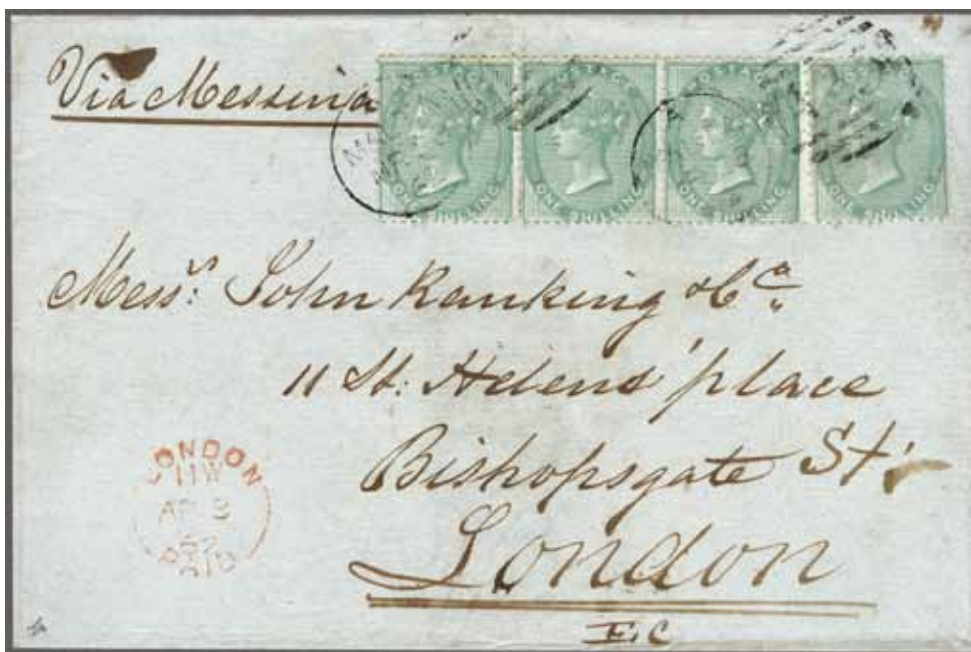 Via Messina
POSTAGE
ONE SHILLING
POSTAGE
ONE SHILLING
POSTAGE
ONE SHILLING
POSTAGE
ONE SHILLING
Messrs: John Ranking & Ca
11 St: Helens' place
Bishopsgate St:
London
E.C
LONDON
PAID